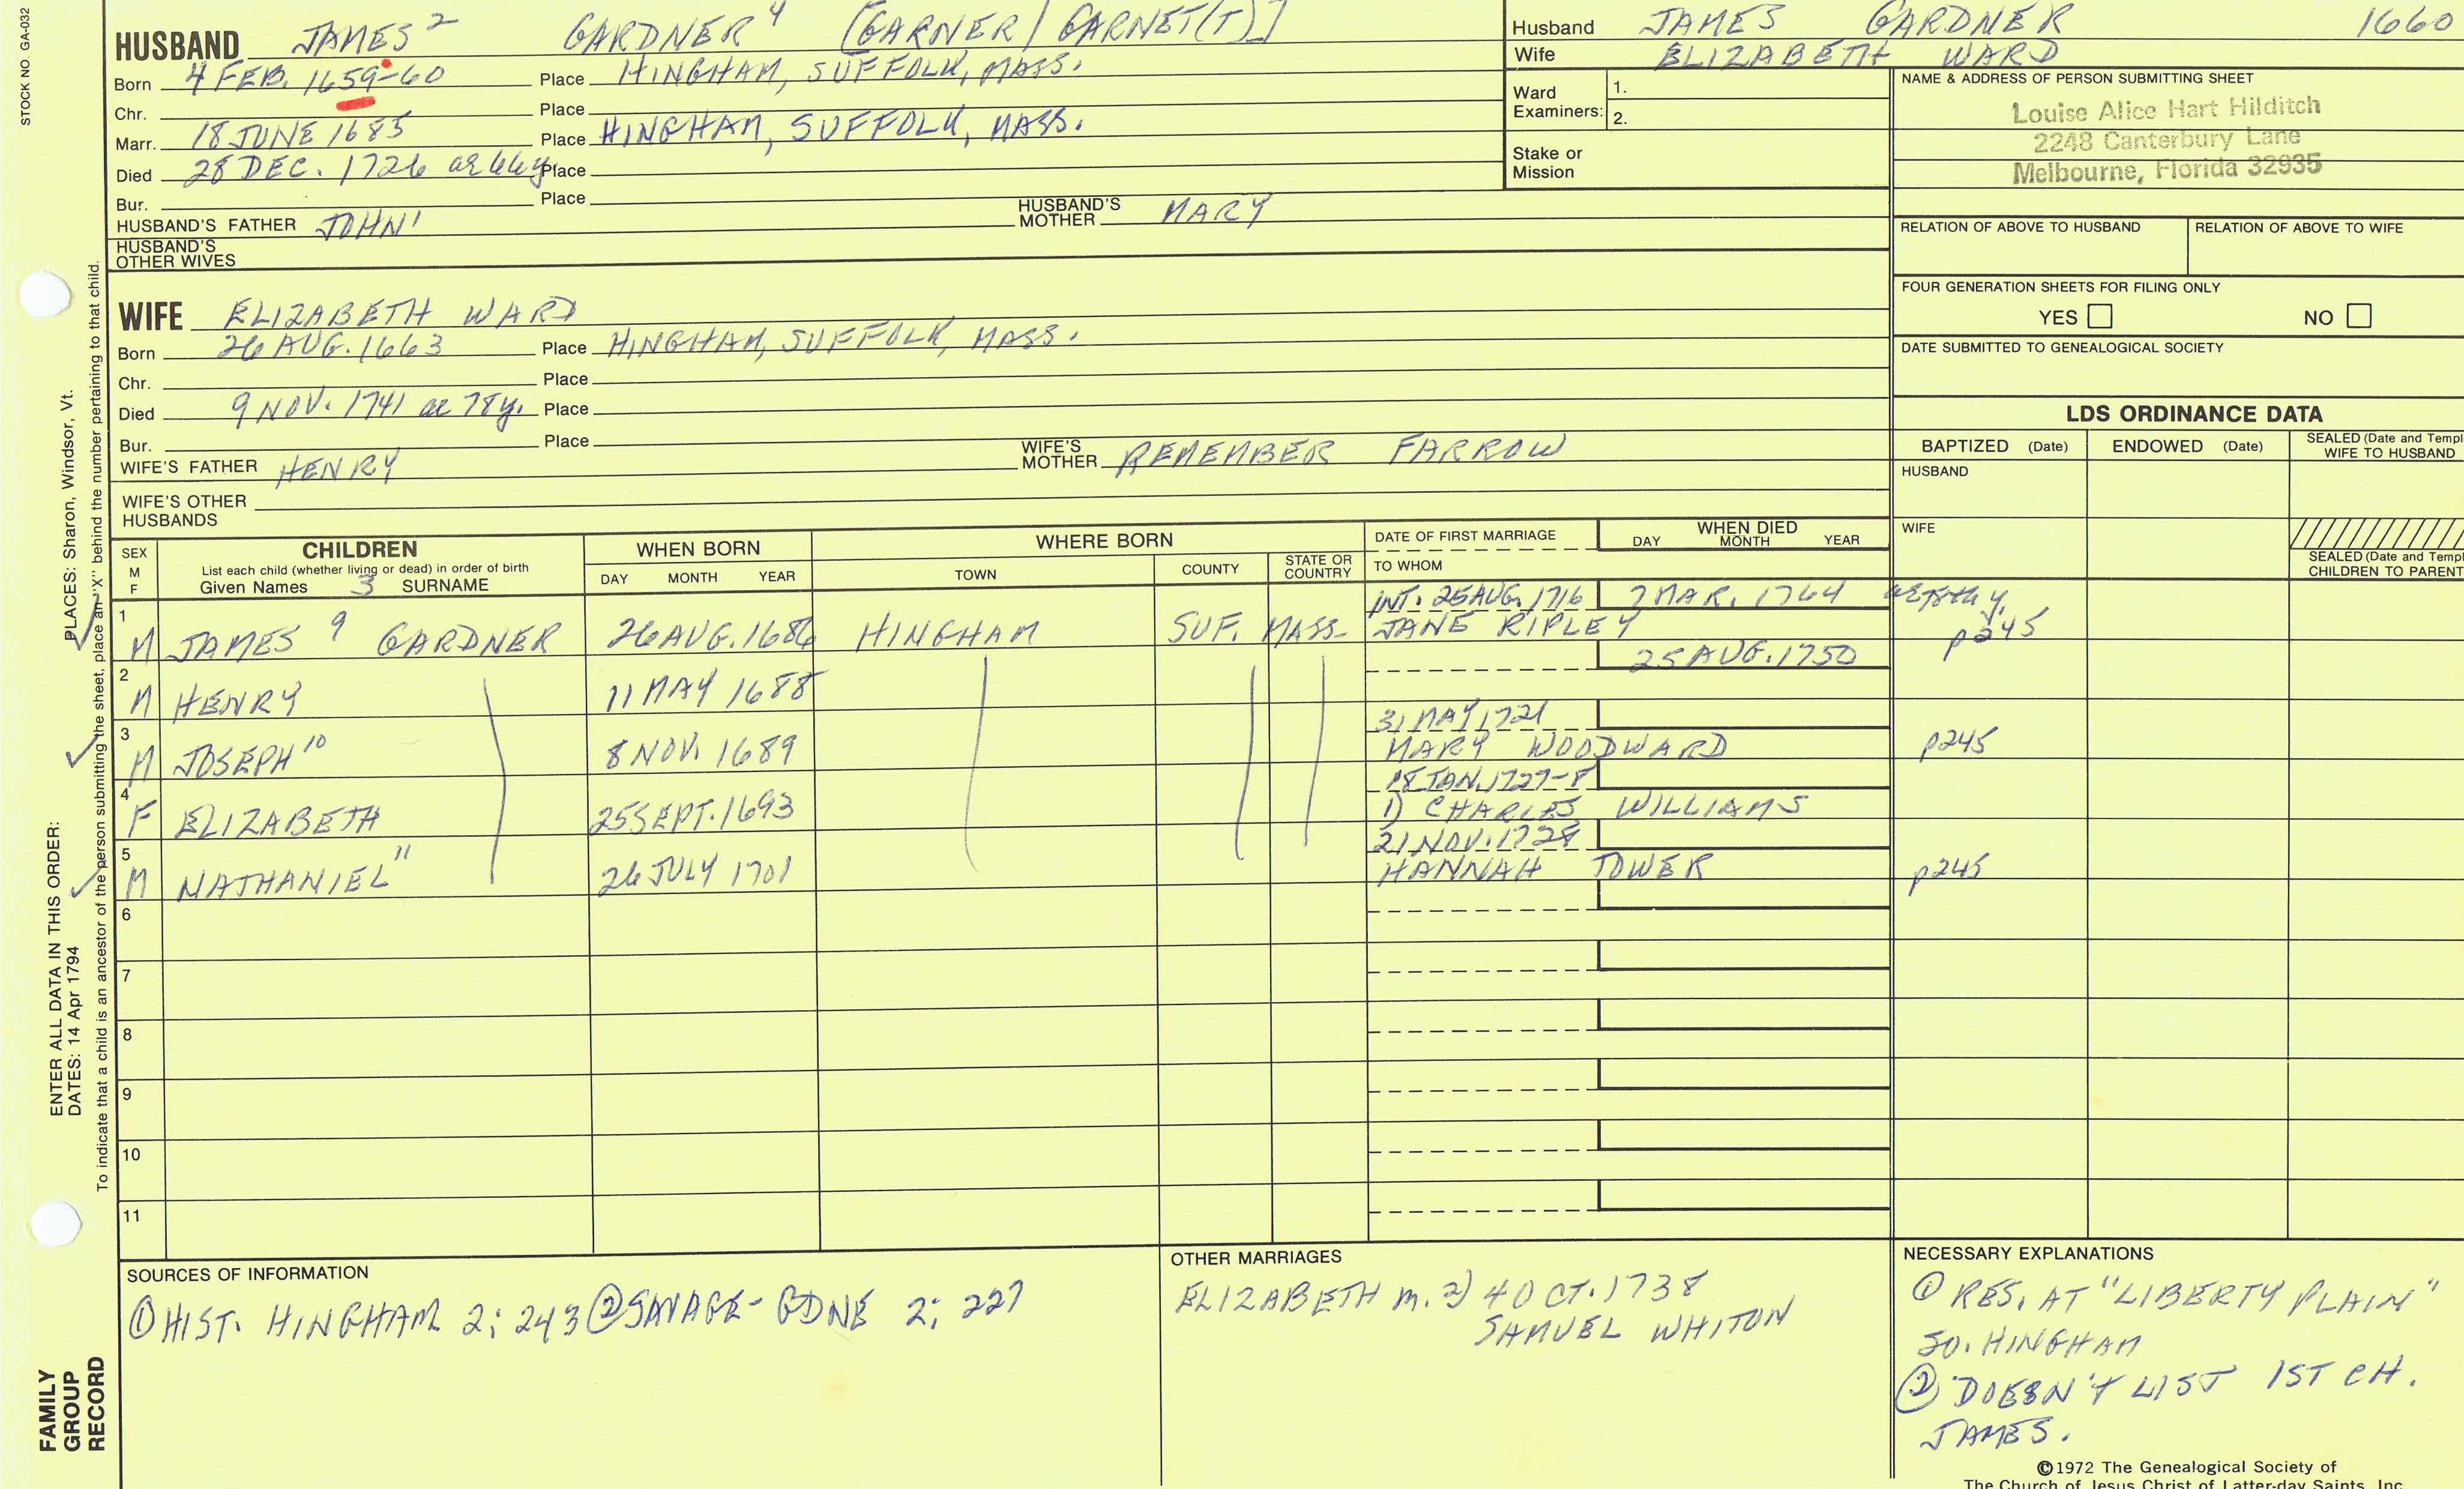 STOCK NO. GA-032
HUSBAND JAMES² GARDNER⁴ [GARNER/GARNET(T)]
Born 4 FEB. 1659-60 Place HINGHAM, SUFFOLK, MASS.
Chr. Place
Marr. 18 JUNE 1685 Place HINGHAM, SUFFOLK, MASS.
Died 28 DEC. 1726 ae 66y Place
Bur. Place
HUSBAND'S FATHER JOHN¹ HUSBAND'S MOTHER MARY
HUSBAND'S OTHER WIVES
Husband JAMES GARDNER 1660
Wife ELIZABETH WARD
Ward Examiners: 1.
2.
Stake or Mission
NAME & ADDRESS OF PERSON SUBMITTING SHEET
Louise Alice Hart Hilditch
2248 Canterbury Lane
Melbourne, Florida 32935
RELATION OF ABOVE TO HUSBAND RELATION OF ABOVE TO WIFE
FOUR GENERATION SHEETS FOR FILING ONLY
YES NO
DATE SUBMITTED TO GENEALOGICAL SOCIETY
WIFE ELIZABETH WARD
Born 26 AUG. 1663 Place HINGHAM, SUFFOLK, MASS.
Chr. Place
Died 9 NOV. 1741 ae 78y. Place
Bur. Place
WIFE'S FATHER HENRY WIFE'S MOTHER REMEMBER FARROW
WIFE'S OTHER HUSBANDS
LDS ORDINANCE DATA
BAPTIZED (Date) ENDOWED (Date) SEALED (Date and Templ
WIFE TO HUSBAND
HUSBAND
WIFE
SEALED (Date and Templ
CHILDREN TO PARENT
SEX M F CHILDREN WHEN BORN WHERE BORN DATE OF FIRST MARRIAGE WHEN DIED
List each child (whether living or dead) in order of birth
Given Names 3 SURNAME DAY MONTH YEAR TOWN COUNTY STATE OR COUNTRY TO WHOM DAY MONTH YEAR
INT. 25 AUG. 1716 7 MAR. 1764
1 M JAMES⁹ GARDNER 26 AUG. 1686 HINGHAM SUF. MASS. JANE RIPLEY p245
25 AUG. 1750
2 M HENRY 11 MAY 1688
31 MAY 1721
3 M JOSEPH¹⁰ 8 NOV. 1689 MARY WOODWARD p245
18 JAN. 1727-8
4 F ELIZABETH 25 SEPT. 1693 1) CHARLES WILLIAMS
21 NOV. 1728
5 M NATHANIEL¹¹ 26 JULY 1701 HANNAH TOWER p245
6
7
8
9
10
11
SOURCES OF INFORMATION
① HIST. HINGHAM 2; 243 ② SAVAGE - GDNE 2; 227
OTHER MARRIAGES
ELIZABETH m. 2) 4 OCT. 1738
SAMUEL WHITON
NECESSARY EXPLANATIONS
① RES. AT "LIBERTY PLAIN"
SO. HINGHAM
② DOESN'T LIST 1ST CH.
JAMES.
©1972 The Genealogical Society of
The Church of Jesus Christ of Latter-day Saints, Inc.
FAMILY
GROUP
RECORD
ENTER ALL DATA IN THIS ORDER:
DATES: 14 Apr 1794
PLACES: Sharon, Windsor, Vt.
To indicate that a child is an ancestor of the person submitting the sheet, place an "X" behind the number pertaining to that child.